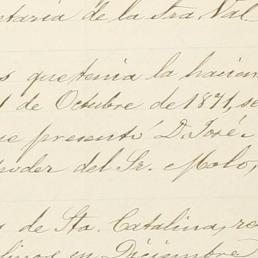 etaria de la Sra Val
s que tenia la hacien
1 de Octubre de 1871, se
ue presentó D. José
poder del Sr. Molo,
s de Sta. Catalina, re
en Diciembre